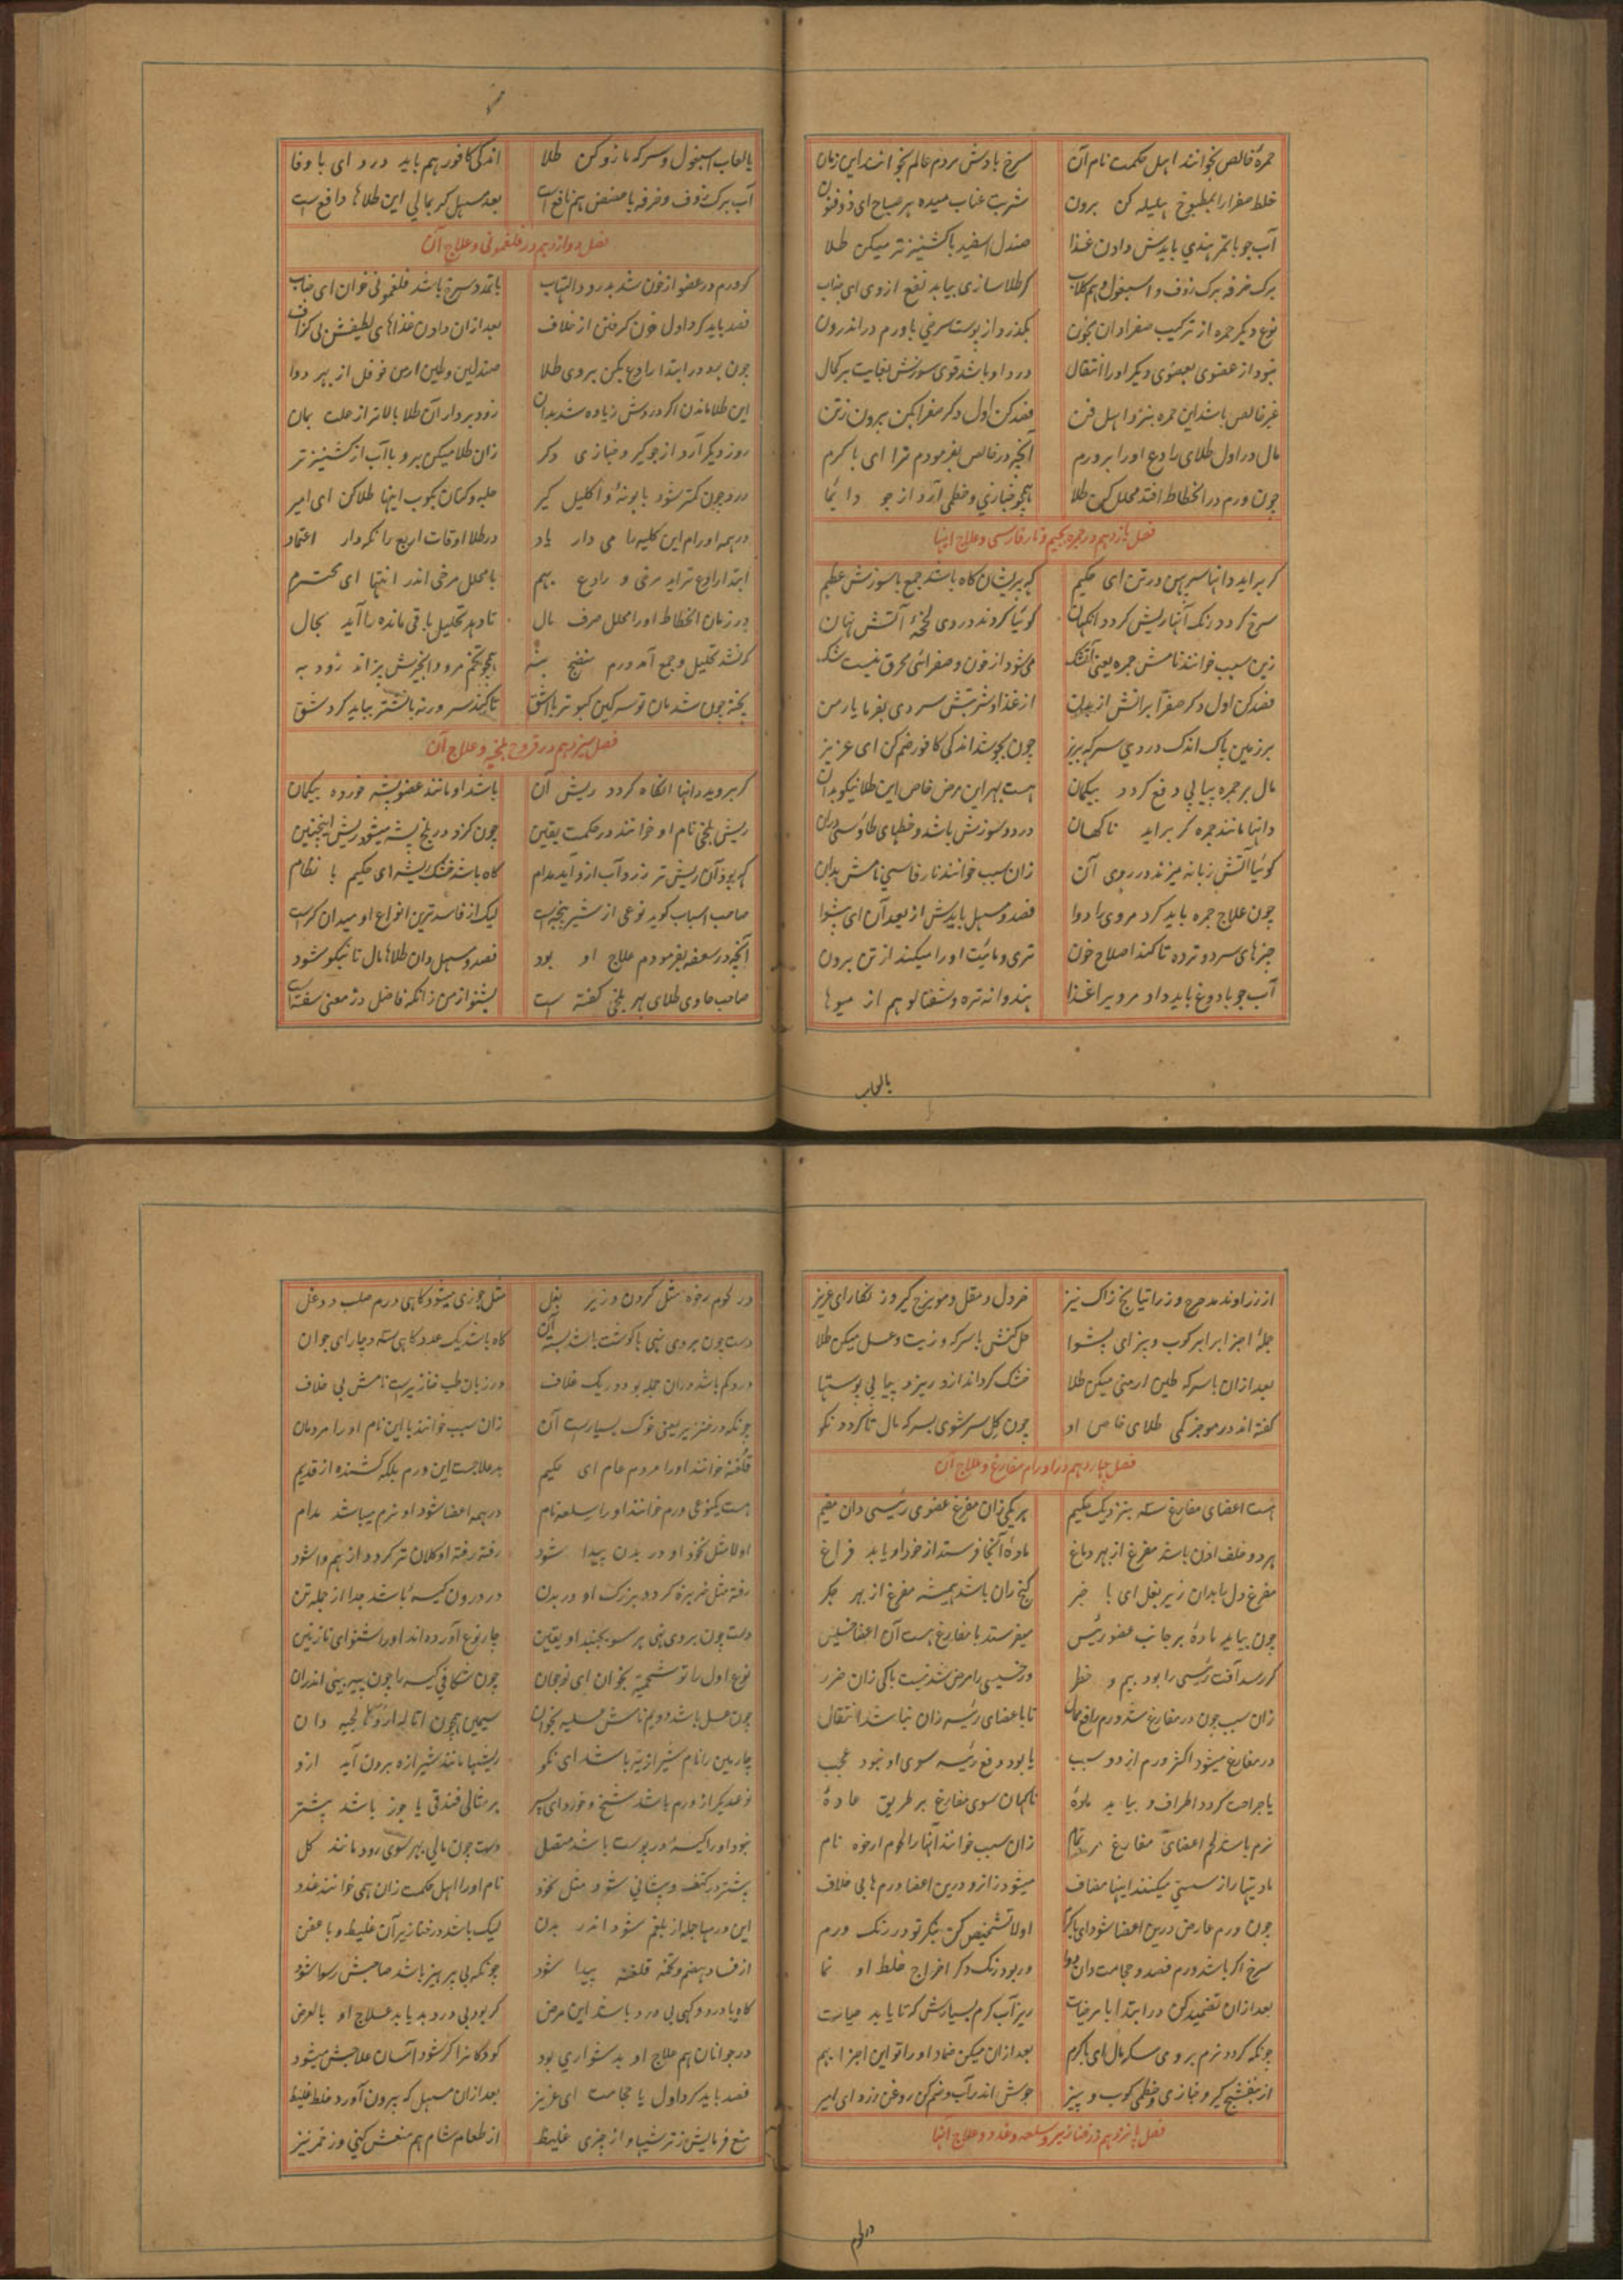 حمرهٔ خالص بخوانند اهل حکمت نام آن سرخ بادش مردم عالم بخوانند این زمان
خلط صفرا را بمطبوخ هلیله کن برون شربت عناب میده هر صباح ای ذوفنون
آب جو با تمر هندی بایدش دادن غذا صندل اسفید با کشنیز تر میکن طلا
برک خرفه برک زوف و اسبغول و هم کلاب کر طلا سازی بیابد نفع از وی ای جناب
نوع دیکر حمره از ترکیب صفرا دان بخون بکذرد از پوست سرخی با ورم در اندرون
نبود از عضوی بعضوی دیکر او را انتقال درد او باشد قوی سوزش بغایت بر کمال
غیر خالص باشد این حمره بنزد اهل فن فصد کن اول دکر صفرا بکن بیرون ز تن
مال در اول طلای رادع او را بر ورم آنچه در خالص بفرمودم ترا ای با کرم
چون ورم در انحطاط افتد محلل کن طلا همچو خبازی و خطمی آرد از جو دایما
فصل یازدهم در جمره بجیم و نار فارسی و علاج اینها
کر براید دانها سر پهن در تن ای حکیم که پریشان کاه باشد جمع با سوزش عظیم
سرخ کردد رنک آنها ریش کردد انکهان کوئیا کردند در وی لختهٔ آتش نهان
زین سبب خوانند نامش جمره یعنی اخکر می شود از خون و صفرائی محرق نیست شک
فصد کن اول دکر صفرا برانش از بدن از غذا و شربتش سردی بفرما یار من
بر زمین پاک اندک دردی سرکه بریز چون بجوشد اندکی کافور ضم کن ای عزیز
مال بر جمره پیاپی دفع کردد بیکمان هست بهر این مرض خاص این طلا نیکو بدان
دانها مانند جمره کر براید ناکهان درد و سوزش باشد و خطهای طاوسی دران
کوئیا آتش زبانه میزند در روی آن زان سبب خوانند نار فارسی نامش بدان
چون علاج جمره باید کرد مر وی را دوا فصد و مسهل بایدش از بعد آن ای پیشوا
چیزهای سرد و تر ده تا کند اصلاح خون تری و مائیت او را میکند از تن برون
آب جو با دوغ باید داد مر ویرا غذا هندوانه تره و شفتالو هم از میوها
بالعاب
بالعاب اسبغول و سرکه مازو کن طلا اندکی کافور هم باید درد ای با وفا
آب برک زوف و خرفه با مضض هم نافع است بعد مسهل کر بمالی این طلاها دافع است
فصل دوازدهم در فلغمونی و علاج آن
کر ورم در عضو از خون شد بدرد و التهاب با تمدد سرخ باشد فلغمونی خوان ای جناب
فصد باید کرد اول خون کرفتن از خلاف بعد ازان دادن غذاهای لطیفش بی کزاف
چون بود در ابتدا رادع بکن بر وی طلا صندلین و طین ارمن فوفل از بهر دوا
این طلا ماندن اکر دردش زیاده شد بدان زود بردار آن طلا بالاتر از علت بمان
روز دیکر آرد از جو کیر و خبازی دکر زان طلا میکن برو با آب از کشنیز تر
درد چون کمتر شود بابونه و اکلیل کیر حلبه و کتان بکوب اینها طلا کن ای امیر
در همه اورام این کلیه را می دار یاد در طلا اوقات اربع را نکه دار اعتماد
ابتدا رادع تراید مرخی و رادع بهم با محلل مرخی اندر انتها ای محترم
در زمان انحطاط او را محلل صرف مال تا دهد تحلیل باقی مانده را آید بحال
کر نشد تحلیل و جمع آمد ورم منضج بنه همچو تخم مرو و انجیرش پزاند زود به
پخته چون شد مان تو سرکین کبوتر با اشق تا کند سر ورنه با نشتر بباید کرد شق
فصل سیزدهم در قروح بلخیه و علاج آن
کر بروید دانها انکاه کردد ریش آن باشد او مانند عضو پشه خورده بیکمان
ریش بلخی نام او خوانند در حکمت یقین چون کزد در بلخ پشه میشود ریش اینچنین
که بود آن ریش تر زرد آب ازو آید مدام کاه باشد خشک ریشه ای حکیم با نظام
صاحب اسباب کوید نوعی از شیرینجه است لیک از فاسدترین انواع او میدان کر است
آنچه در سعفه بفرمودم علاج او بود فصد و مسهل دان طلاها مال تا نیکو شود
صاحب حاوی طلای بهر بلخی کفته است بشنو از من زانکه فاضل در معنی سفته است
از زراوند مدحرج و زراتیانج زاک نیز خردل و مقل و مویزج کیر و زنکار ای عزیز
جملهٔ اجزا برابر کوب و بیز ای پیشوا حل کنش با سرکه و زیت و عسل میکن طلا
بعد ازان با سرکه طین ارمنی میکن طلا خشک کرداند ازو ریزد پیاپی پوستها
کفته اند در موجز کمی طلای خاص او چون کل سرشوی بسرکه مال تا کردد نکو
فصل چهاردهم در اورام مفارغ و علاج آن
هست اعضای مفارغ سه بنزدیک حکیم هر یکی زان مفرغ عضوی رئیسی دان مقیم
هر دو خلف اذن باشد مفرغ از بهر دماغ مادهٔ آنجا فرستد از خود او یابد فراغ
مفرغ دل را بدان زیر بغل ای با خبر کنج ران باشد همیشه مفرغ از بهر جکر
چون بیاید مادهٔ بر جانب عضو رئیس میفرستد با مفارغ هست آن اعضا خسیس
کر رسد آفت رئیسی را بود بیم و خطر ور خسیسی را مرض شد نیست باکی زان ضرر
زان سبب چون در مفارغ شد ورم رافع ممال تا باعضای رئیسه زان نباشد انتقال
در مفارغ میشود اکثر ورم از دو سبب یا بود دفع رئیسه سوی او نبود عجب
یا جراحت کردد اطراف و بیاید مادهٔ ناکهان سوی مفارغ بر طریق عادهٔ
نرم باشد لحم اعضای مفارغ تمام زان سبب خوانند آنها را لحوم ارخوه نام
مادیتها را ز سستی میکنند اینها مضاف میشود زانرو درین اعضا ورمها بی خلاف
چون ورم عارض درین اعضا شود ای با کرم اولا تشخیص کن بنکر تو در رنک ورم
سرخ اکر باشد ورم فصد و حجامت دان دوا ور بود رنک دکر اخراج خلط او نما
بعد ازان تضمید کن در ابتدا با مرخیات ریز آب کرم بسیارش که تا یابد حیات
چونکه کردد نرم بر وی سکه مال ای با کرم بعد ازان میکن ضماد او را تو این اجزا بهم
از بنفشج کیر و خبازی و خطمی کوب و بیز جوش اندر آب و ضم کن روغن وزد ای امیر
فصل پانزدهم در خنازیر و سلعه و غدد و علاج آنها
در لحوم
در لحوم رخوه مثل کردن و زیر بغل مثل جوزی میشود کاهی ورم صلب و دغل
دست چون بر وی نهی با کوشت باشد بسته آن کاه باشد یک عدد کاهی سه و چار ای جوان
درد کم باشد دران جمله بود در یک غلاف در زبان طب خنازیرست نامش بی خلاف
چونکه در خنزیر یعنی خوک بسیارست آن زان سبب خوانند با این نام او را مردمان
قلغنه خوانند او را مردم عام ای حکیم بد علاجست این ورم بلکه کشنده از قدیم
هست یکنوعی ورم خوانند او را سلعه نام در همه اعضا شود او نرم میباشد مدام
اولا مثل نخود او در بدن پیدا شود رفته رفته او کلان تر کردد از هم وا شود
رفته مثل خربزه کردد بزرک او در بدن در درون کیسهٔ باشد جدا از جمله تن
دست چون بر وی نهی هر سو بجنبد او یقین چار نوع آورده اند او را شنو ای نازنین
نوع اول را تو شحمیه بخوان ای نوجوان چون شکافی کیسه را چون پیه بینی اندران
چون عسل باشد دویم نامش عسلیه بخوان سیمین همچون دان
چارمین را نام شیرازیه باشد ای نکو ریشها مانند شیرازه برون آید ازو
نوع دیکر از ورم باشد شیخ و خورد ای پسر بر مثالی فندقی یا جوز باشد بیشتر
نبود او را کیسه در پوست باشد متصل دست چون مالی بهر سوی رود مانند کل
بیشتر در کتف و پیشانی شود مثل نخود نام او را اهل حکمت زان همی خوانند غدد
این ورمها جمله از بلغم شود اندر بدن لیک باشد در خنازیر آن غلیظ و با عفن
از فساد هضم و تخمه قلغنه پیدا شود چونکه بی پرهیز باشد صاحبش رسوا شود
کاه با درد و کهی بی درد باشد این مرض کر بود بی درد بد یابد علاج او بالعرض
در جوانان هم علاج او بدشواری بود کودکانرا کر شود آسان علاجش میشود
فصد باید کرد اول یا حجامت ای عزیز بعد ازان مسهل که بیرون آورد خلط غلیظ
منع فرمایش ز ترشیها و از چیزی غلیظ از طعام شام هم منعش کنی وز خمر نیز